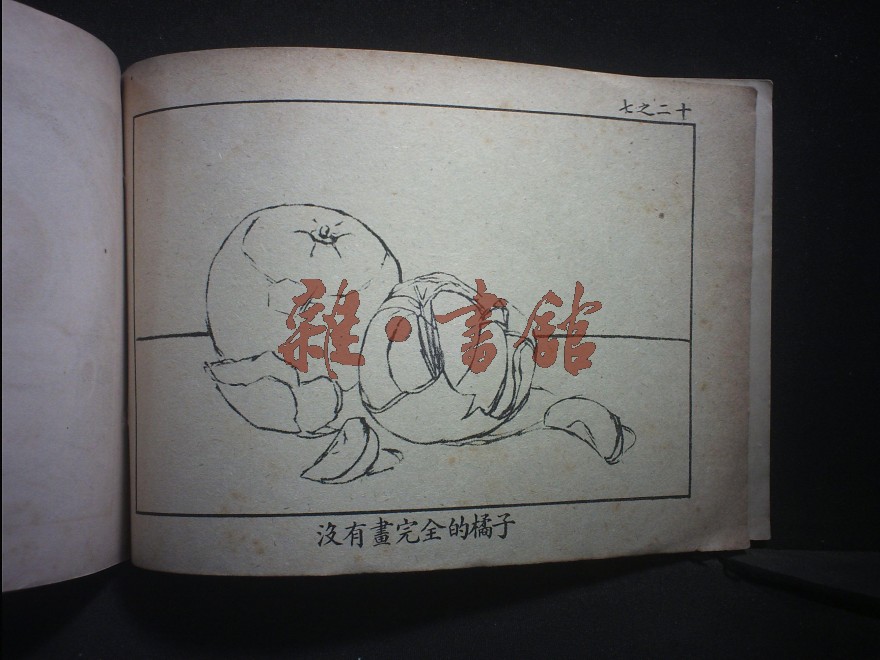 七之二十
雜·書館
沒有畫完全的橘子